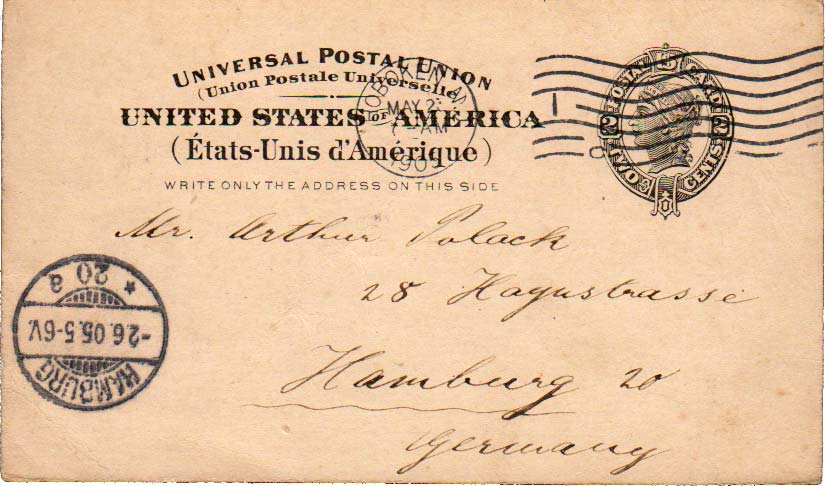 UNIVERSAL POSTAL UNION
(Union Postale Universelle)
UNITED STATES OF AMERICA
(États-Unis d'Amérique)
WRITE ONLY THE ADDRESS ON THIS SIDE
HOBOKEN
MAY 2
AM
POSTAL CARD
2 2
TWO CENTS
Mr. Arthur Polack
28 Hagustrasse
Hamburg 20
Germany
HAMBURG
-2.6.05.5-6V.
* 20 a